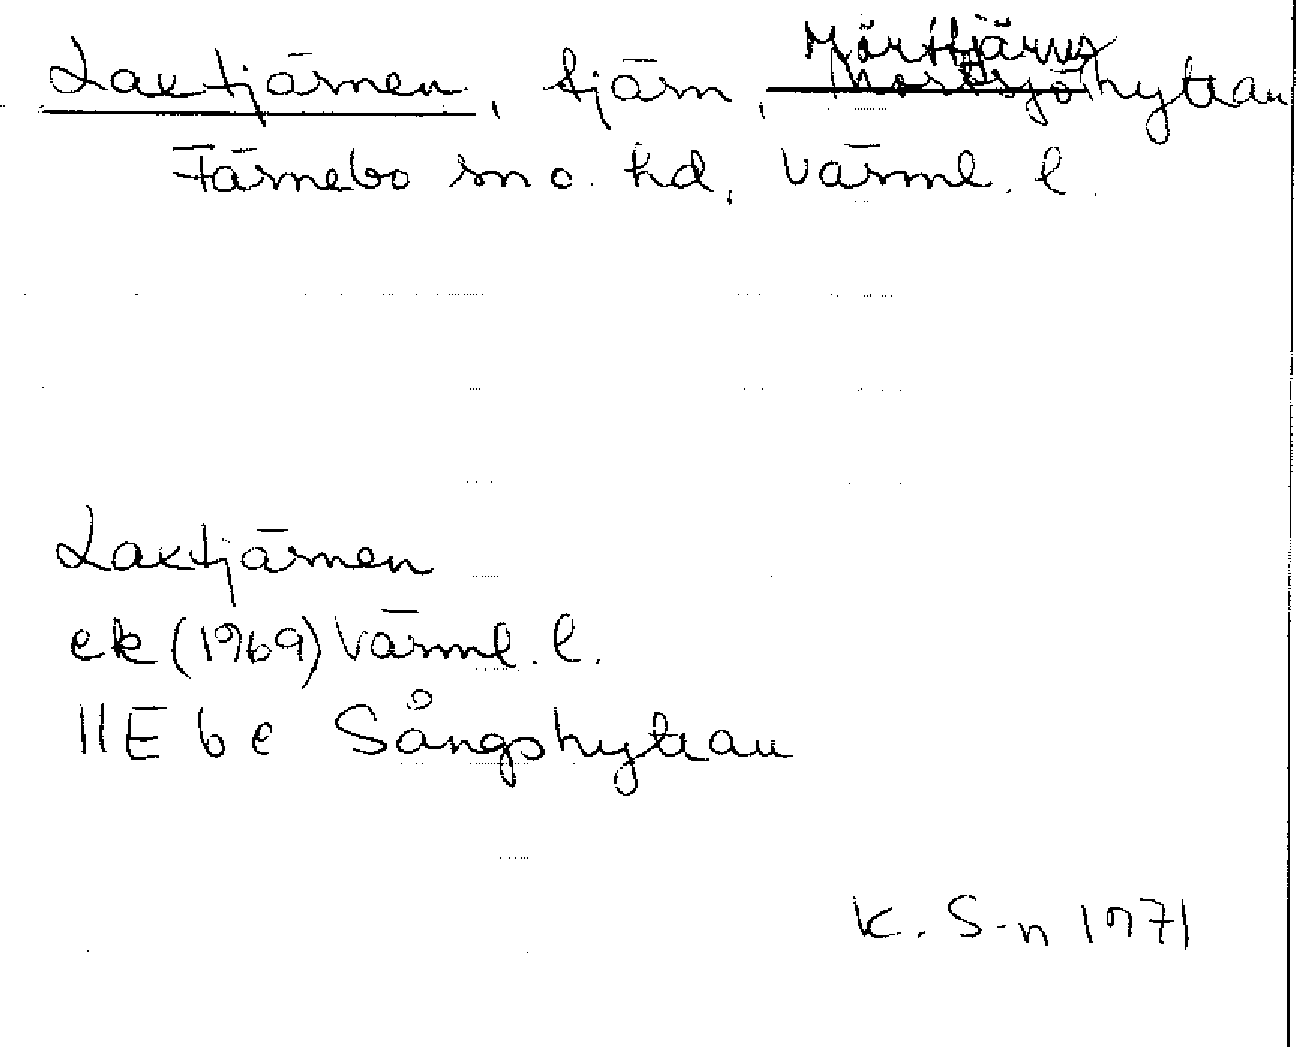 Laxtjärnen, tjärn, Mörttjärns Mortsjöhyttan
Färnebo sn o. hd, Värml. l.
Laxtjärnen
ek (1969) Värml. l.
11E 6 e Sångshyttan
K. S-n 1971